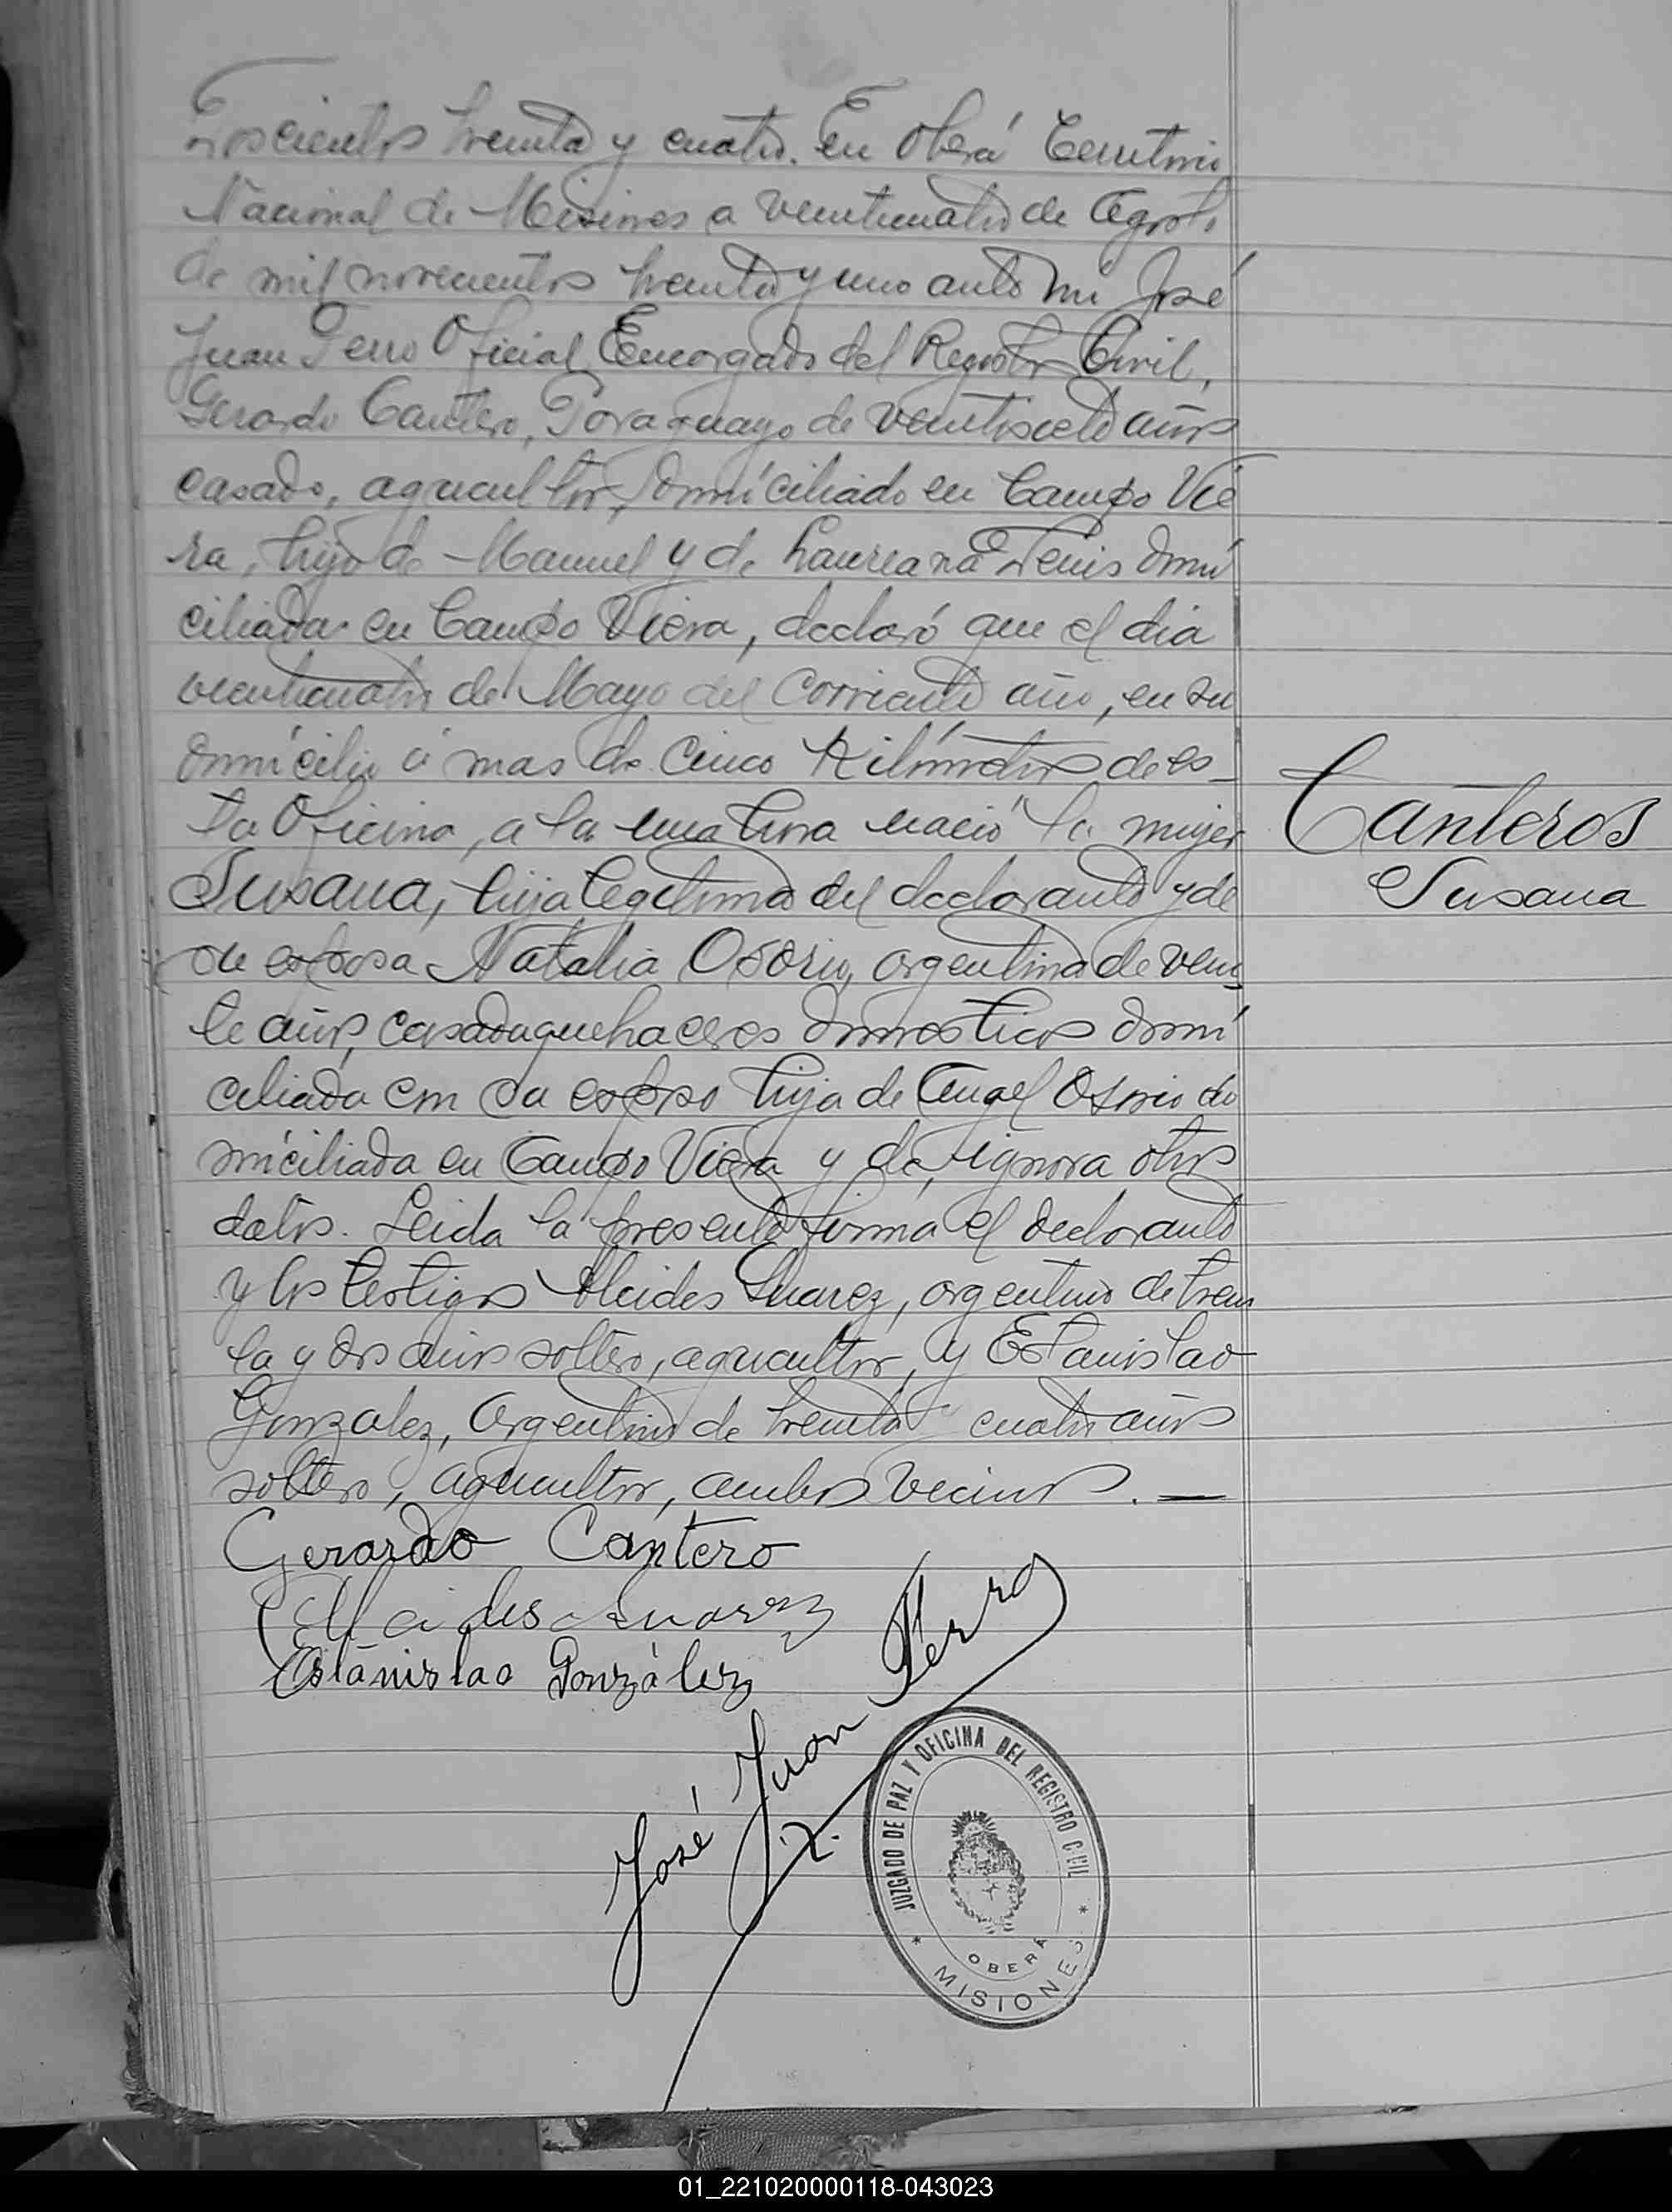 Doscientos treinta y cuatro. En Oberá Territorio
Nacional de Misiones a veinticuatro de Agosto
de mil novecientos treinta y uno ante mi José
Juan Perro Oficial Encargado del Registro Civil,
Gerardo Cantero, Paraguayo de veintisiete años
casado, agricultor, domiciliado en Campo Vie
ra, hijo de Manuel y de Laureana domi
ciliada en Campo Viera, declaró que el dia
veinticuatro de Mayo del corriente año, en su
domicilio á mas de cinco Kilómetros de es-
ta Oficina, a la una hora nació la mujer
Susana, hija legitima del declarante y de
su esposa Natalia Osorio, argentina de vein
te años, casada quehaceres domesticos domi
ciliada con su esposo hija de Angel Osorio do
miciliada en Campo Viera y de, ignora otros
datos. Leida la presente firma el declarante
y los testigos Alcides Suarez, argentino de trein
ta y dos años soltero, agricultor, y Estanislao
Gonzalez, Argentino de treinta y cuatro años
soltero, agricultor, ambos vecinos. —
Gerardo Cantero
Alcides Suarez
Estanislao González
José Juan Perro
JUZGADO DE PAZ Y OFICINA DEL REGISTRO CIVIL
OBERÁ
* MISIONES *
Canteros
Susana
01_221020000118-043023